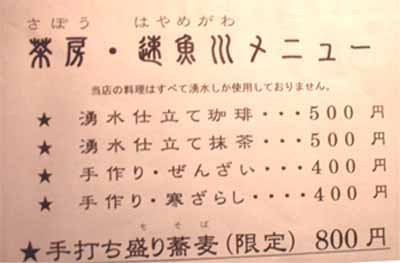 さぼう はやめがわ
茶房・速魚川メニュー
当店の料理はすべて湧水しか使用しておりません。
★ 湧水仕立て珈琲・・・500円
★ 湧水仕立て抹茶・・・500円
★ 手作り・ぜんざい・・・400円
★ 手作り・寒ざらし・・・・400円
もそば
★手打ち盛り蕎麦(限定) 800円